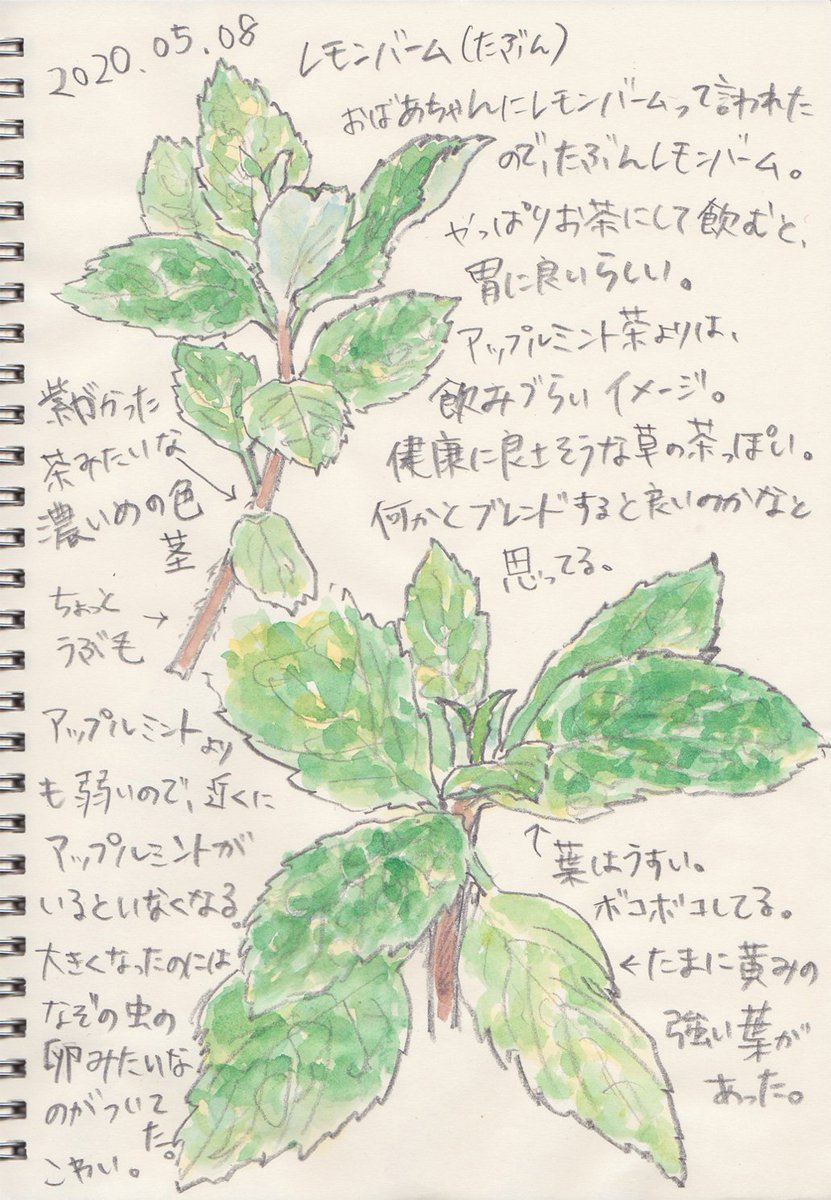 2020.05.08
レモンバーム(たぶん)
おばあちゃんにレモンバームって言われた
ので、たぶんレモンバーム。
やっぱりお茶にして飲むと、
胃に良いらしい。
アップルミント茶よりは、
飲みづらいイメージ。
健康に良さそうな草の茶っぽい。
何かとブレンドすると良いのかなと
思ってる。
紫がかった
茶みたいな
濃いめの色
茎
ちょっと→
うぶ毛
アップルミントより
も弱いので、近くに
アップルミントが
いるといなくなる。
大きくなったのには
なぞの虫の
卵みたいな
のがついて
た。
こわい。
↑葉はうすい。
ボコボコしてる。
←たまに黄みの
強い葉が
あった。